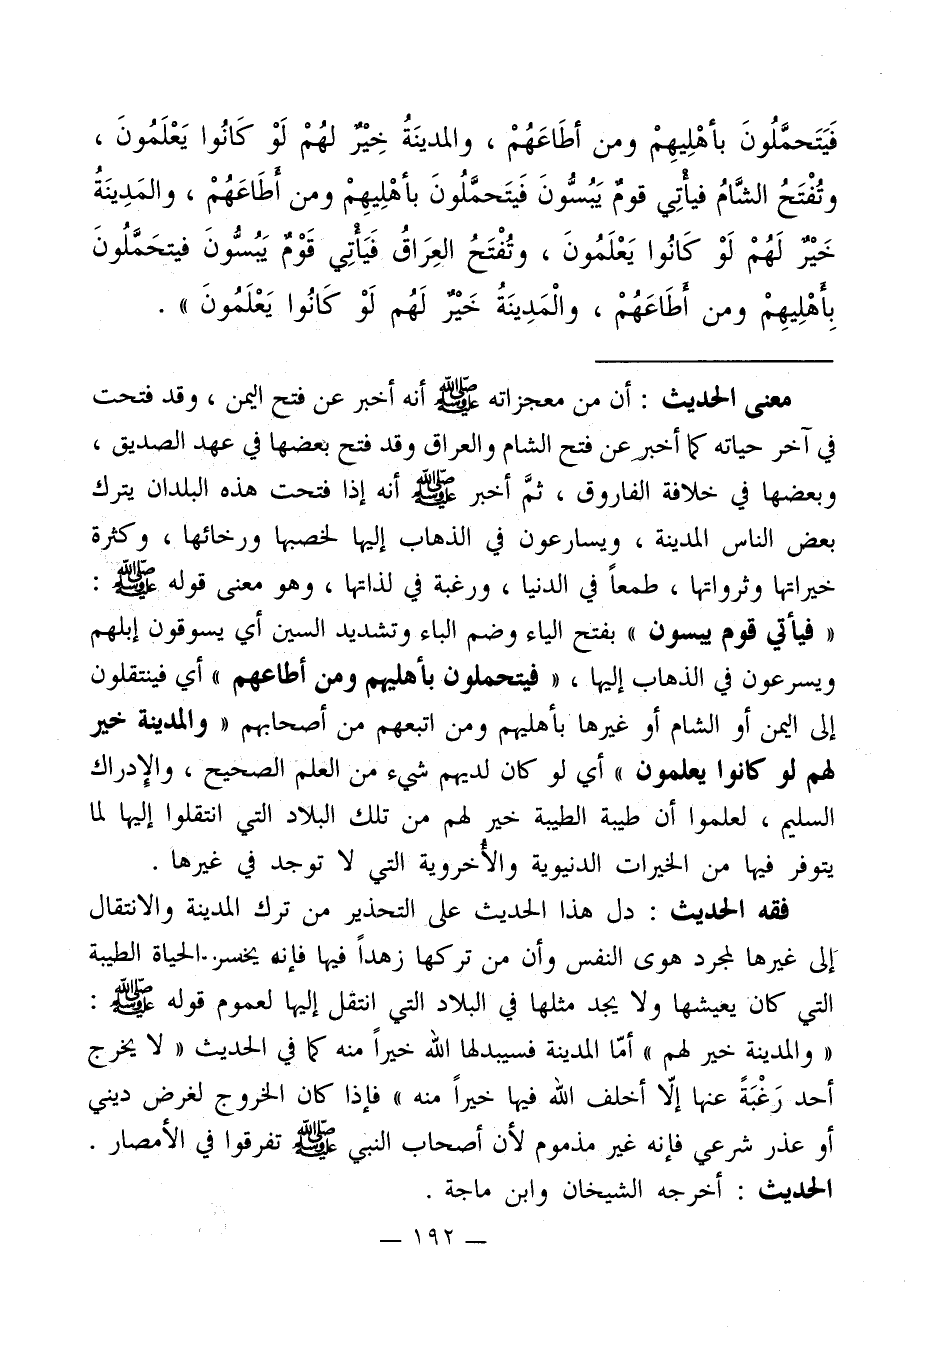 فَيَتَحمَّلُونَ بأهْلِيهِمْ ومن أطَاعَهُمْ ، والمدينَةُ خِيْرٌ لهُمْ لَوْ كَانُوا يَعْلَمُونَ ،
وتُفْتَحُ الشَّامُ فيأْتِي قومٌ يَبُسُّونَ فَيَتَحمَّلُونَ بأهْلِيهِمْ ومن أَطَاعَهُمْ ، والمَدِينَةُ
خَيْرٌ لَهُمْ لَوْ كَانُوا يَعْلَمُونَ ، وتُفْتَحُ العِرَاقُ فَيَأْتِي قَوْمٌ يَبُسُّونَ فيتحَمَّلُونَ
بِأَهْلِيهِمْ ومن أَطَاعَهُمْ ، والْمَدِينَةُ خَيْرٌ لَهُم لَوْ كَانُوا يَعْلَمُونَ » .
معنى الحديث : أن من معجزاته ﷺ أنه أخبر عن فتح اليمن ، وقد فتحت
في آخر حياته كما أخبر عن فتح الشام والعراق وقد فتح بعضها في عهد الصديق ،
وبعضها في خلافة الفاروق ، ثمَّ أخبر ﷺ أنه إذا فتحت هذه البلدان يترك
بعض الناس المدينة ، ويسارعون في الذهاب إليها لخصبها ورخائها ، وكثرة
خيراتها وثرواتها ، طمعاً في الدنيا ، ورغبة في لذاتها ، وهو معنى قوله ﷺ :
« فيأتي قوم يبسون » بفتح الياء وضم الباء وتشديد السين أي يسوقون إبلهم
ويسرعون في الذهاب إليها ، « فيتحملون بأهليهم ومن أطاعهم » أي فينتقلون
إلى اليمن أو الشام أو غيرها بأهليهم ومن اتبعهم من أصحابهم « والمدينة خير
لهم لو كانوا يعلمون » أي لو كان لديهم شيء من العلم الصحيح ، والإدراك
السليم ، لعلموا أن طيبة الطيبة خير لهم من تلك البلاد التي انتقلوا إليها لما
يتوفر فيها من الخيرات الدنيوية والأُخروية التي لا توجد في غيرها .
فقه الحديث : دل هذا الحديث على التحذير من ترك المدينة والانتقال
إلى غيرها لمجرد هوى النفس وأن من تركها زهداً فيها فإنه يخسر الحياة الطيبة
التي كان يعيشها ولا يجد مثلها في البلاد التي انتقل إليها لعموم قوله ﷺ :
« والمدينة خير لهم » أمّا المدينة فسيبدلها الله خيراً منه كما في الحديث « لا يخرج
أحد رَغْبَةً عنها إلّا أخلف الله فيها خيراً منه » فإذا كان الخروج لغرض ديني
أو عذر شرعي فإنه غير مذموم لأن أصحاب النبي ﷺ تفرقوا في الأمصار .
الحديث : أخرجه الشيخان وابن ماجة .
— ١٩٢ —